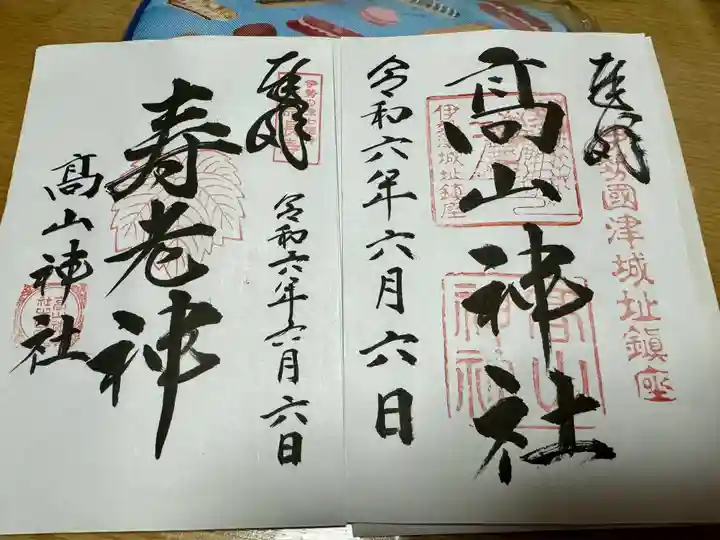 奉拝
伊勢國津城址鎮座
髙山神社
伊勢津城址鎮座
髙山
神社
令和六年六月六日
奉拝
寿老神
令和六年六月六日
髙山神社